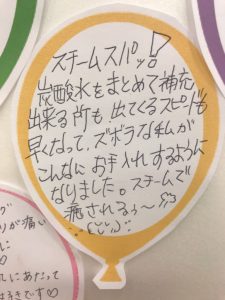 スチームスパッ!
炭酸水をまとめて補充
出来る所も、出てくるスピードも
早くなって、ズボラな私が
こんなに お手入れするように
なりました。スチームで
癒される〜
グ
りが痛い
に
♡
んにあたって
はきです♡